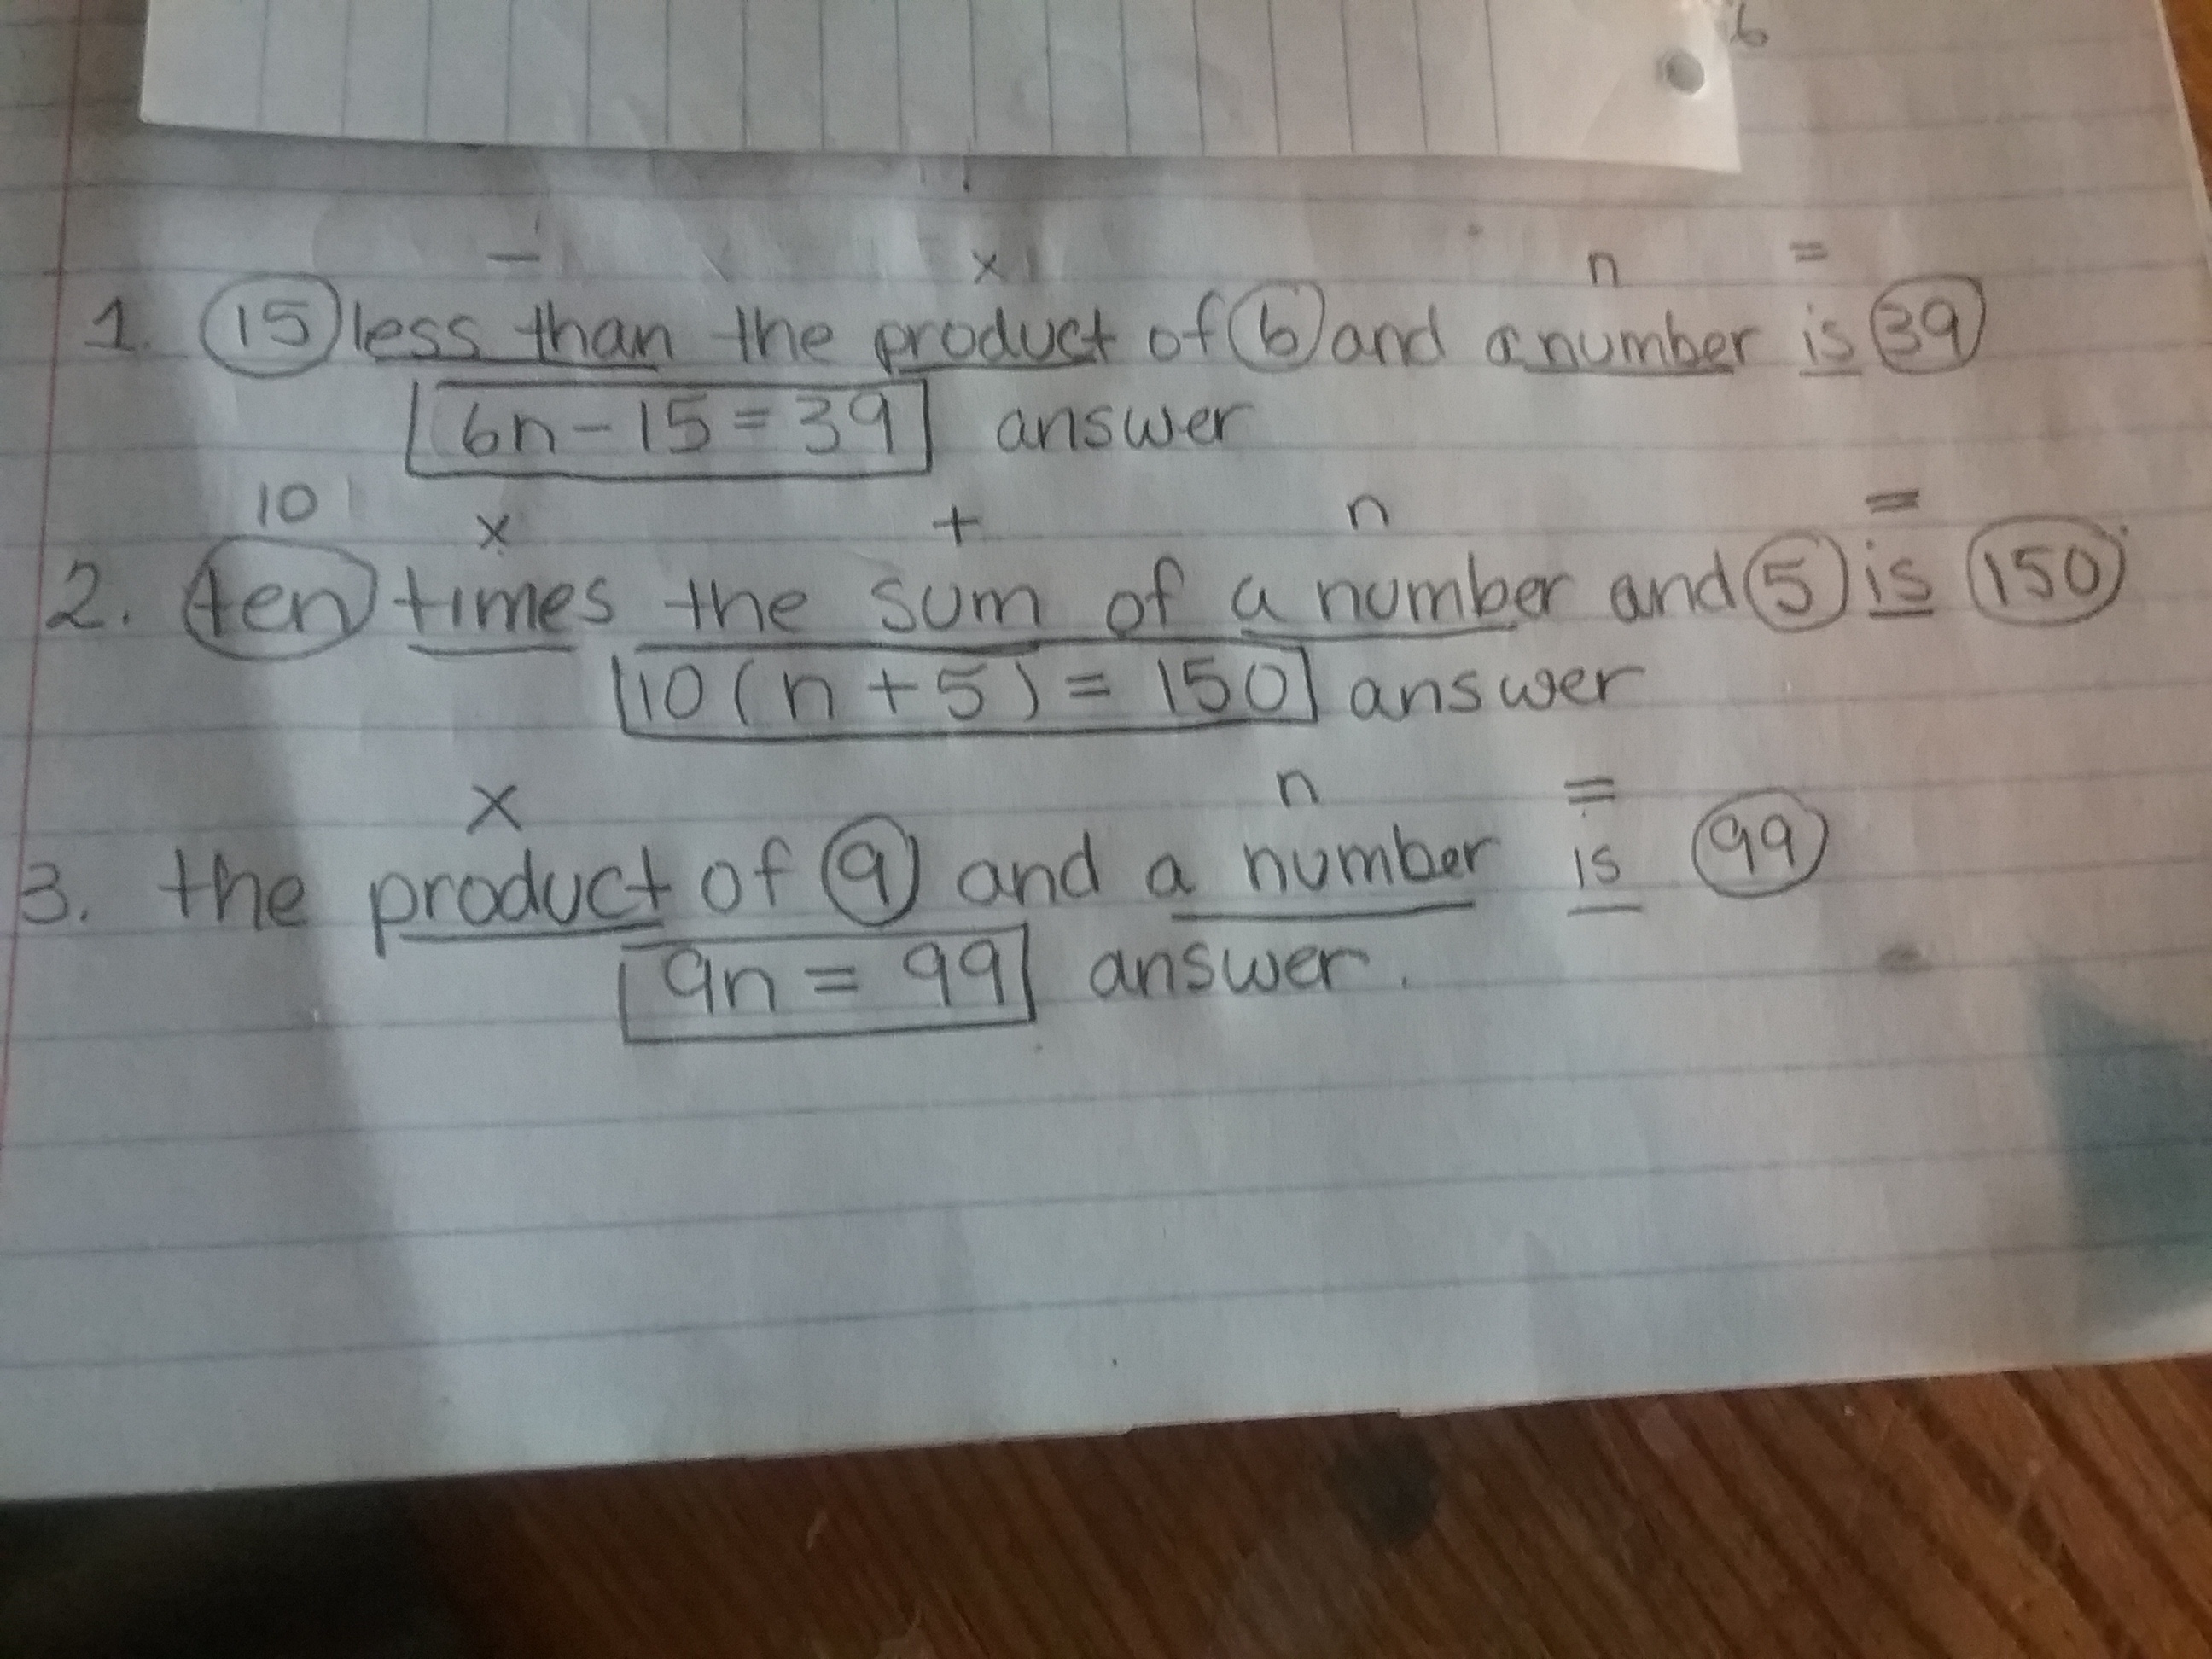 6
- x n =
1. 15 less than the product of 6 and a number is 39
6n-15=39 answer
10 x + n =
2. ten times the sum of a number and 5 is 150
10(n+5) = 150 answer
x n =
3. the product of 9 and a number is 99
9n = 99 answer.